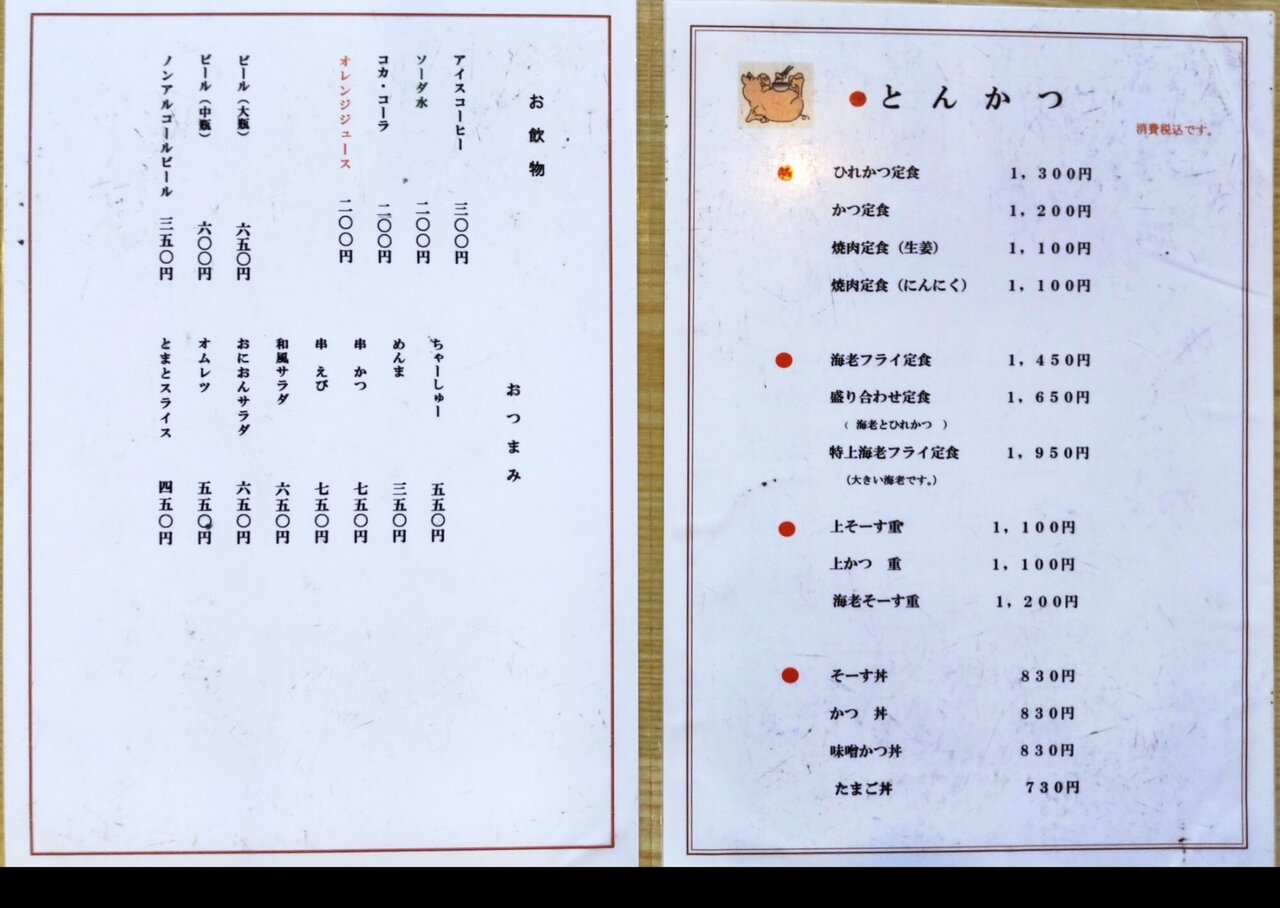 お飲物
アイスコーヒー 三〇〇円
ソーダ水 二〇〇円
コカ・コーラ 二〇〇円
オレンジジュース 二〇〇円
ビール（大瓶） 六五〇円
ビール（中瓶） 六〇〇円
ノンアルコールビール 三五〇円
おつまみ
ちゃーしゅー 五五〇円
めんま 三五〇円
串 かつ 七五〇円
串 えび 七五〇円
和風サラダ 六五〇円
おにおんサラダ 六五〇円
オムレツ 五五〇円
とまとスライス 四五〇円
●とんかつ
消費税込です。
ひれかつ定食 1，300円
かつ定食 1，200円
焼肉定食（生姜） 1，100円
焼肉定食（にんにく） 1，100円
海老フライ定食 1，450円
盛り合わせ定食 1，650円
（ 海老とひれかつ ）
特上海老フライ定食 1，950円
（大きい海老です。）
上そーす重 1，100円
上かつ 重 1，100円
海老そーす重 1，200円
そーす丼 830円
かつ 丼 830円
味噌かつ丼 830円
たまご丼 730円